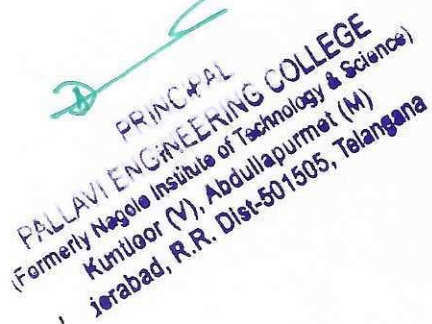 PRINCIPAL
PALLAVI ENGINEERING COLLEGE
(Formerly Nagole Institute of Technology & Science)
Kuntloor (V), Abdullapurmet (M)
derabad, R.R. Dist-501505, Telangana